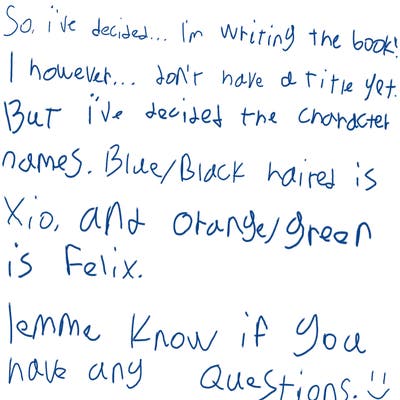 So, i've decided... I'm writing the book!
I however... don't have a title yet.
But i've decided the character
names. Blue/Black haired is
Xio, and orange/green
is Felix.
lemme know if you
have any questions. :)